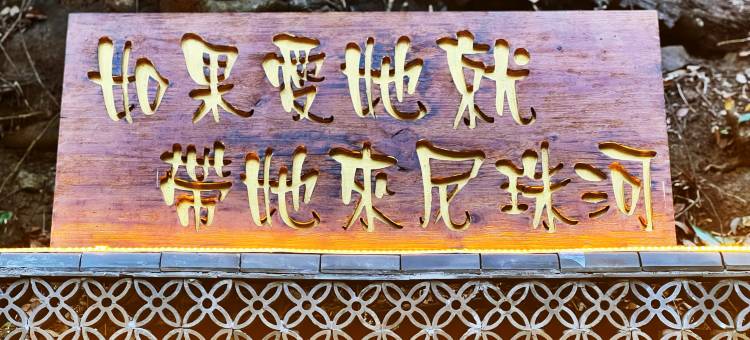 如果愛她就
帶她來尼珠河